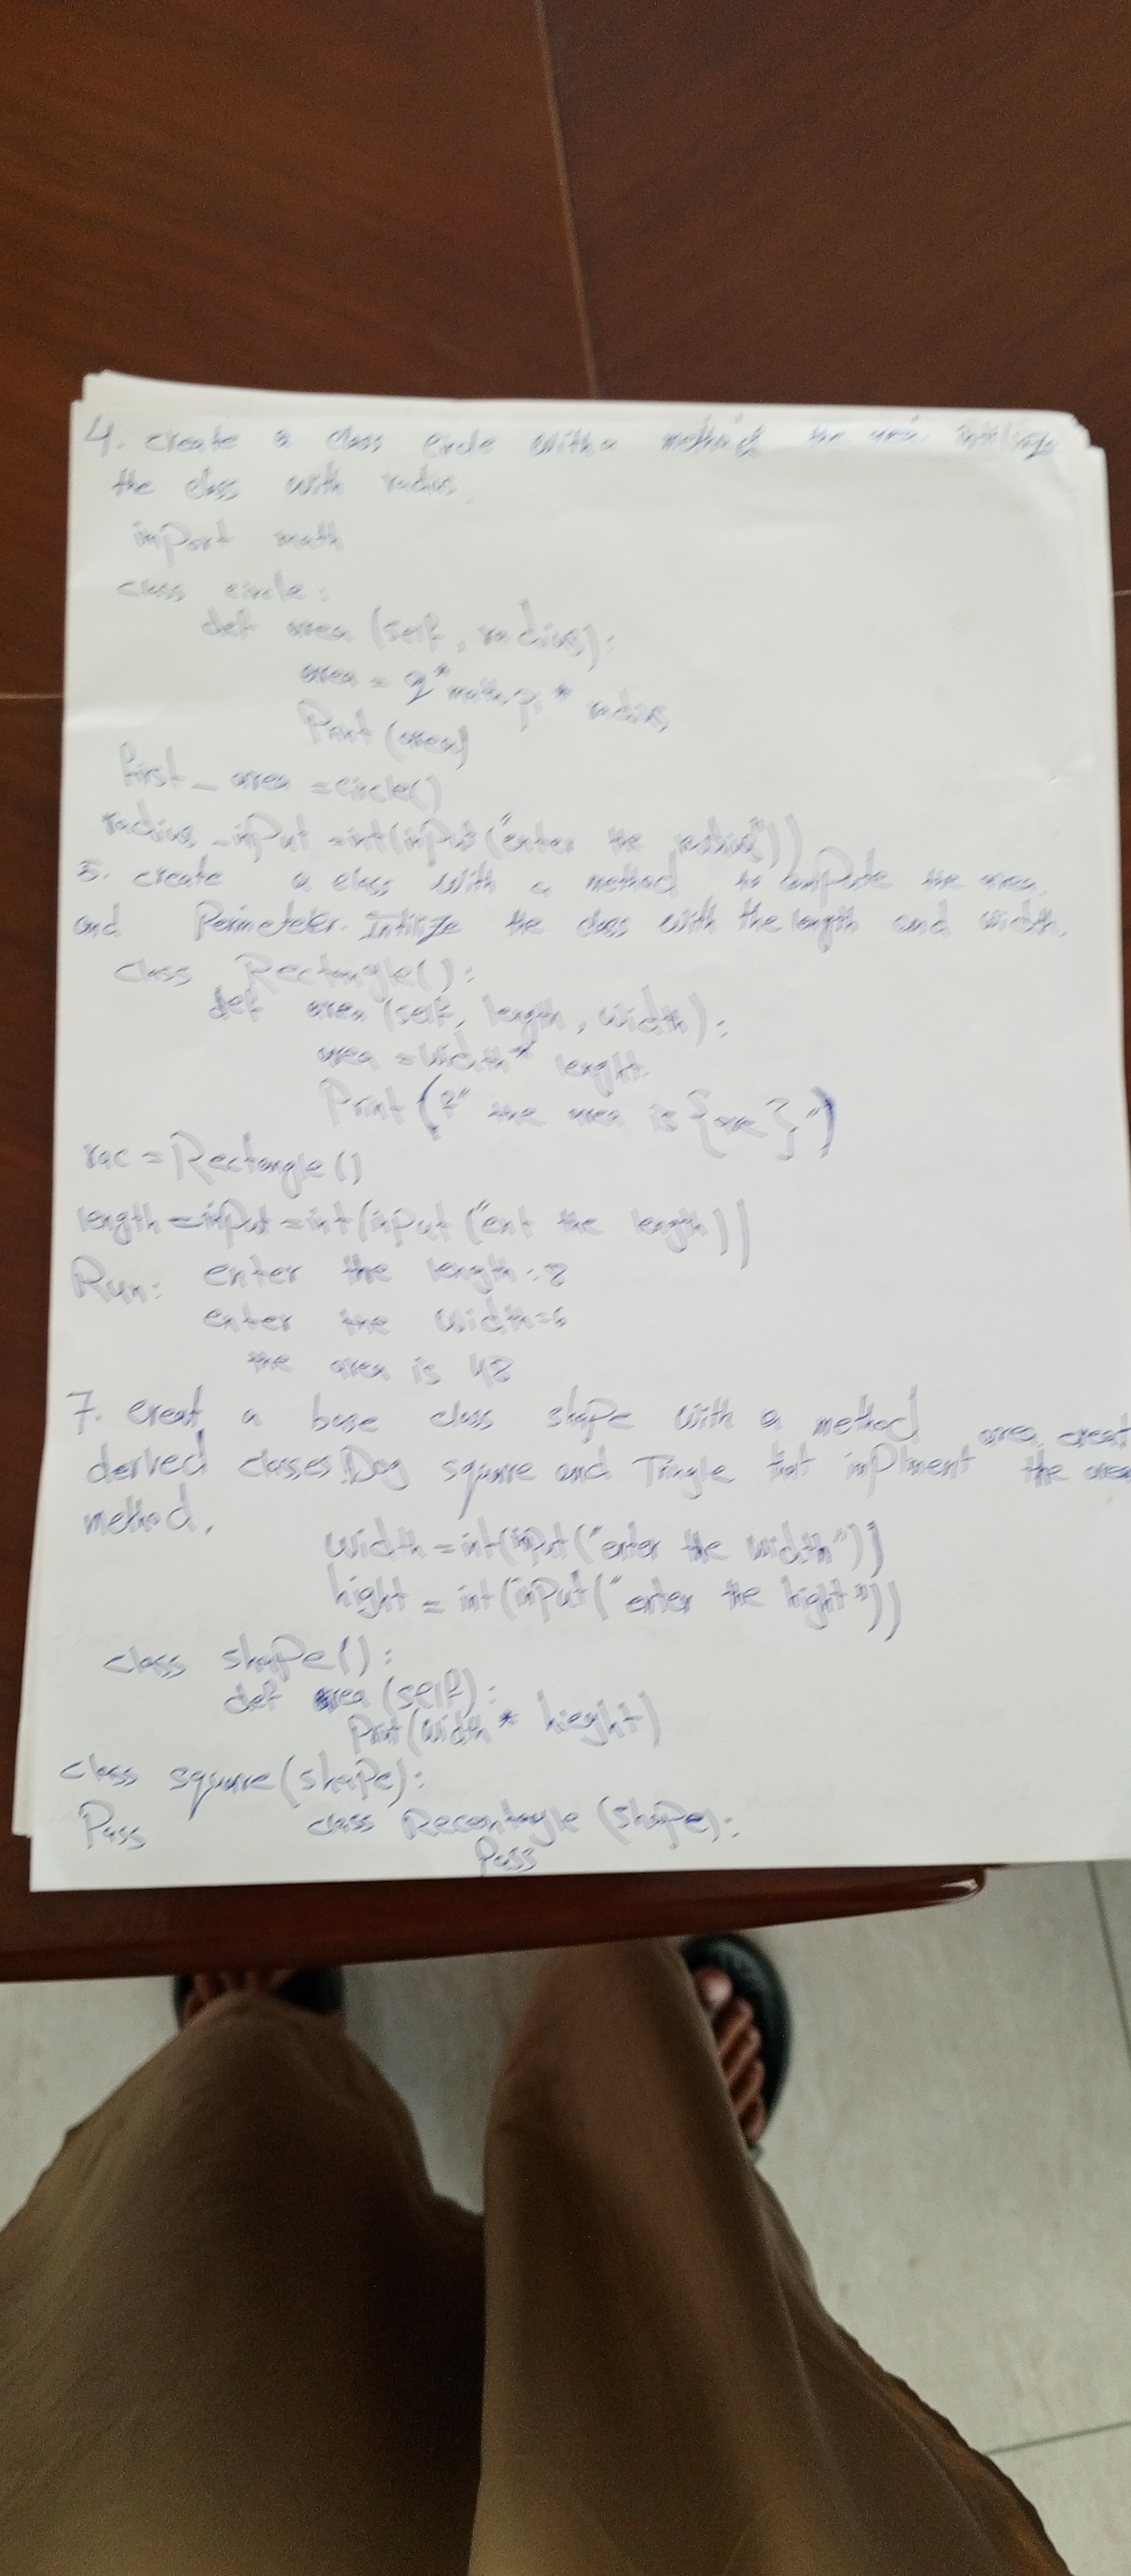 4. create a class Circle with a method the area. 
the class with radius
import math
class circle:
def area (self, radius):
area = 2* math.pi * radius
Print (area)
first_area = circle()
radius_input = int(input("enter the radius"))
5. create a class with a method to compute the area.
and Perimeter. the class with the length and width.
class Rectangle():
def area (self, length, width):
area = width* lenght.
Print (f" the area is {are}")
rac = Rectangle()
length = input = int(input ("ent the length))
Run: enter the length:8
enter the width=6
the area is 48
7. creat a base class shape with a method area. creat
derived clases Dog square and Tringle that implment the area
method.
width = int(input("enter the width"))
hight = int(input("enter the hight"))
class shape():
def area (self):
Print(width * hieght)
class square(shape):
Pass class (shape):
Pass